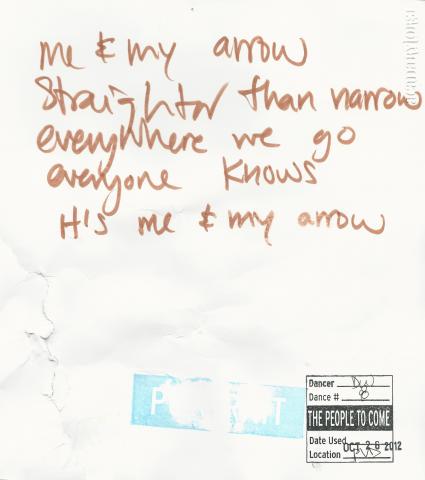 me & my arrow
Straighter than narrow
everywhere we go
everyone knows
It's me & my arrow
Dancer
Dance # 8
THE PEOPLE TO COME
Date Used OCT 26 2012
Location